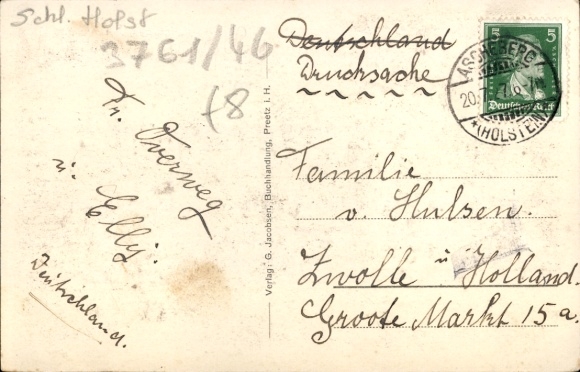 Schl. Holst
3761/46
(8
Deutschland
Drucksache
Fr. Overweg
u. Elly.
Deutschland.
Verlag: G. Jacobsen, Buchhandlung, Preetz i. H.
5 5
Deutsches Reich
ASCHEBERG
20.7.
*(HOLSTEIN)
Familie
v. Hulsen.
Zwolle ü Holland.
Groote Markt 15a.